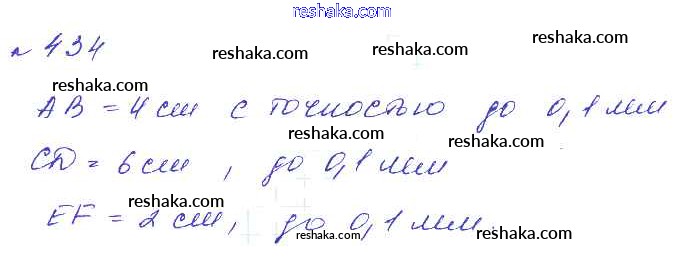 reshaka.com
№ 434
reshaka.com reshaka.com
reshaka.com
AB = 4 см с точностью до 0,1 мм
reshaka.com reshaka.com
CD = 6 см, до 0,1 мм
reshaka.com
EF = 2 см, до 0,1 мм.
reshaka.com reshaka.com reshaka.com